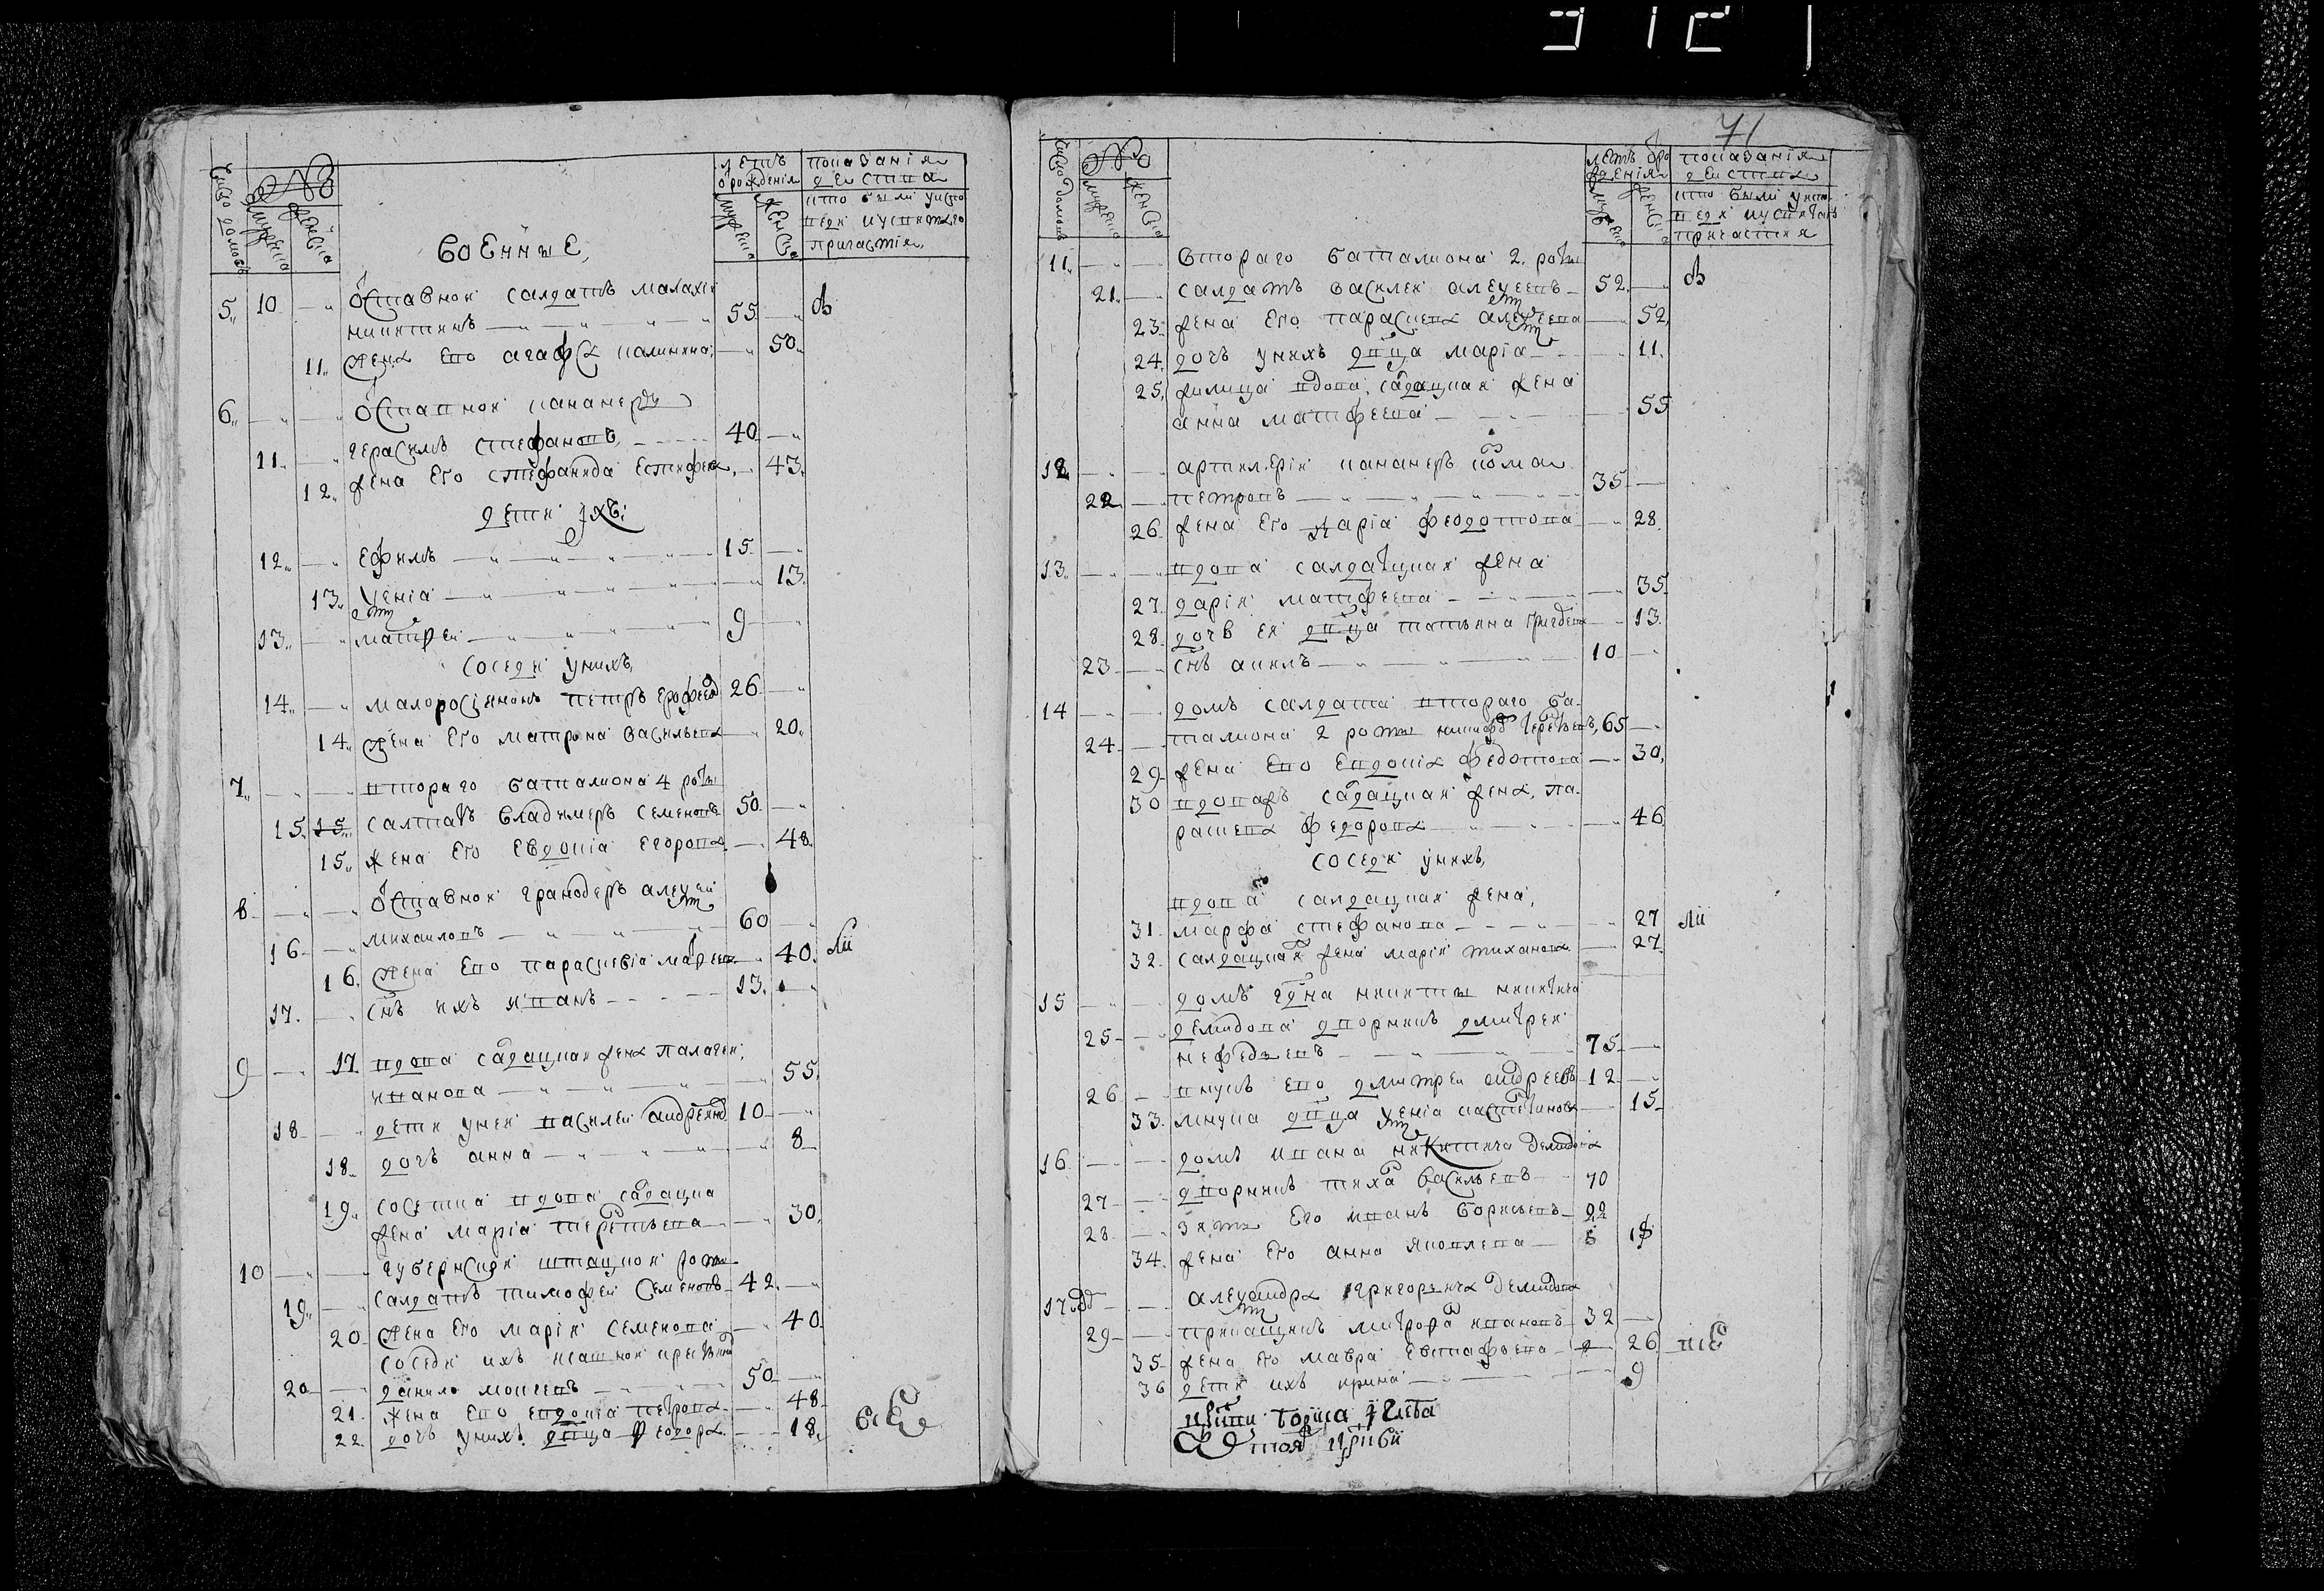 число домовъ
№
мужеска
женска
летъ
о рожденія
мужеска
женска
показанія
действа
кто были у испо
веди и у святаго
причастія
военные,
5 10 оставной салдатъ малахіи
никитинъ 55
11 жена ево агафія калинина 50
6 оставной канонеръ
11 герасимъ стефановъ 40
12 жена его стефанида 43
дети ихъ
12 ефимъ 15
13 ксеніа 13
13 матфеи 9
соседи у нихъ
14 малоросіянинъ петръ ерофеев 26
14 жена его матрона васильева 20
7 втораго баталиона 4 роты
15 15 салтатъ владимеръ семеновъ 50
15 жена его евдокіа егорова 48
8 оставной гранодеръ алексей
16 михаиловъ 60
16 жена ево параскевіа 40
17 снъ ихъ иванъ 13
9 17 вдова салдацкая жена палагея
иванова 55
18 дети у неи василеи 10
18 дочь анна 8
19 соседка вдова салдацка
жена маріа терентьева 30
10 губернскои штацкои роты
19 салдатъ тимофеи семеновъ 42
20 жена его марія семенова 40
соседи ихъ
20 данило моисеевъ 50
21 жена ево евдокіа петрова 48
22 дочь у нихъ двца федора 18
71
число домовъ
№
мужеска
женска
летъ о ро
жденія
мужеска
женска
показанія
действа
кто были у испо
веди и у святаго
причастия
11 втораго баталиона 2 роты
21 салдатъ василеи алексеевъ 52
23 жена его параскева алексеева 52
24 дочь у нихъ двца маріа 11
25 жилица вдова салдацкая жена
анна матфеева 55
12 артилеріи канонеръ
22 петровъ 35
26 жена его маріа федотова 28
13 вдова салдатцкая жена
27 дарія матфеева 35
28 дочь ея двца татьяна 13
23 снъ акимъ 10
14 домъ салдата втораго ба-
24 талиона 2 роты 65
29 жена ево евдокія федотова 30
30 вдова салдацкая жена па-
раскева федорова 46
соседи у нихъ
вдова салдацкая жена
31 марфа стефанова 27
32 салдацкая жена марія тиханова 27
15 домъ гдна никиты никитича
25 демидова дворникъ дмитреи
нефедьевъ 75
26 внукъ ево дмитреи андреевъ 12
33 внука двца ксеніа 15
16 домъ ивана никитича демидова
27 дворникъ тихо васильевъ 70
28 зять его иванъ борисевъ 22
34 жена его анна яковлева 18
17 александра григорьича демидова
29 прикащикъ митрофа ивановъ 32
35 жена его мавра евстафьева 26
36 дети ихъ ирина 9